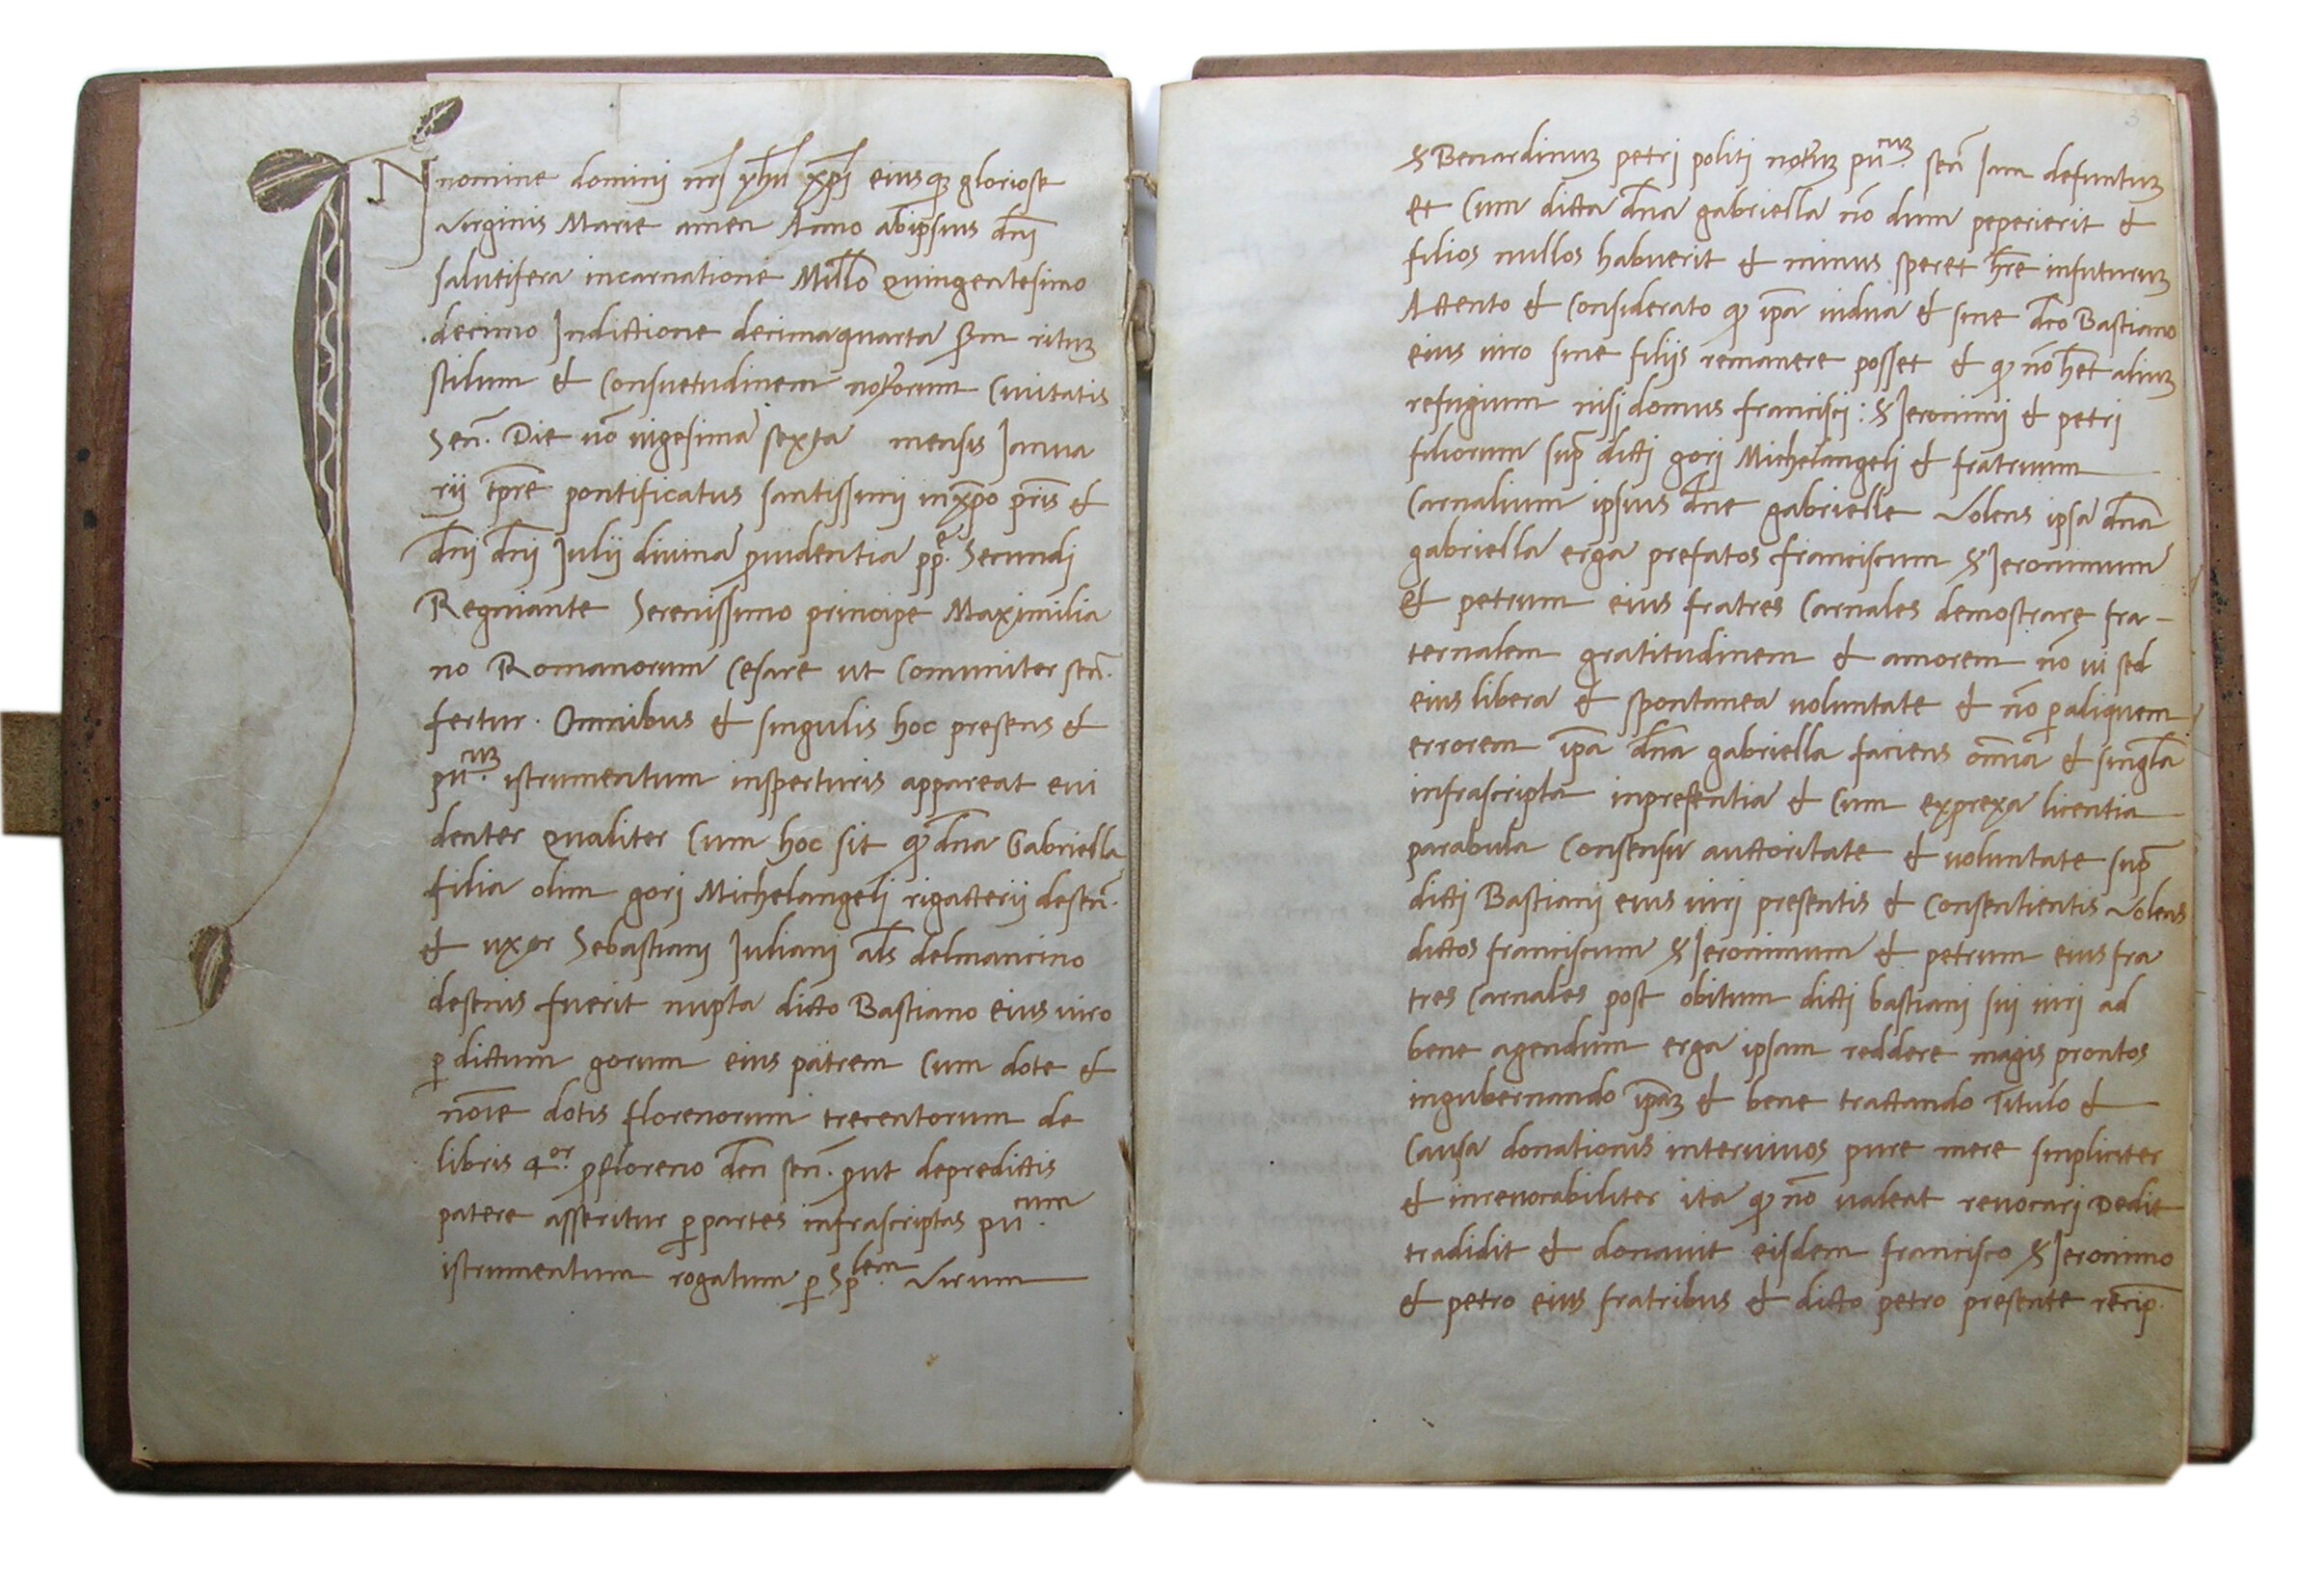 IN nomine domini nr̄j yhū xpī eiusq; gloriose
virginis Marie amen Anno abipsius dn̄j
salutifera incarnatione Mill̄o Quingentesimo
decimo Indictione decimaquarta s̄m rituȝ
stilum & Consuetudinem not̄orum Ciuitatis
Sen̄. Die uō uigesima sexta mensis Janua
rij tp̄re pontificatus santissimi inxp̄o pr̄is &
dn̄j dn̄j Julij diuina ꝓuidentia pp.ᵉ Secundj
Regniante Serenissimo principe Maximilia
no Romanorum Cesare ut Comuniter sen̄.
fertur. Omnibus & singulis hoc presens &
pu.ᶜᵘȝ istrumentum insperturis appareat eui
denter Qualiter Cum hoc sit ꝙ dn̄a Gabriella
filia olim gorj Michelangelj rigatterij desen̄.
& uxor Sebastianj Julianj al̄s delmancino
desenis fuerit nupta dicto Bastiano eius uiro
ꝑ dictum gorum eius patrem Cum dote &
noīe dotis florenorum trecentorum de
libris 4ᵒʳ. ꝓ floreno den̄ sen̄. ꝓut depredictis
patere asseritur ꝑ partes infrascriptas pu.ᶜᵘᵐ
istrumentum rogatum ꝑ Sp.ˡᵉᵐ Virum
S Benardinuȝ petri politi not̄uȝ pu.ᶜᵘȝ sen̄ Jam defuntuȝ
et Cum dicta dn̄a gabriella nō dum peperierit &
filios nullos habuerit & minus speret hr̄e infuturuȝ
Attento & Considerato ꝙ ip̄a uidua & sine dc̄o Bastiano
eius uiro sine filijs remanere posset & ꝙ nō het̄ aliuȝ
refugium nisj domus francisci: S Jeronimj & petrj
filiorum sup̄ dictj gorj Michelangelj & fratruum
Carnalium ipsius dn̄e gabrielle Volens ipsa dn̄a
gabriella erga prefatos franciscum S Jeronimum
& petrum eius fratres Carnales demostrare fra-
ternalem gratitudinem & amorem nō ui sed
eius libera & spontanea uoluntate & nō ꝑ aliquem
errorem ip̄a dn̄a gabriella faciens om̄ia & singl̄a
infrascripta inpresentia & Cum exprexa licentia
parabula Consensu auctoritate & uoluntate sup̄
dictj Bastianj eius uirj presentis & Consentientis Volens
dictos franciscum S Jeronimum & petrum eius fra
tres Carnales post obitum dictj bastianj sui uirj ad
bene agendum erga ipsam reddere magis prontos
ingubernando ip̄aȝ & bene tractando Titulo &
Causa donationis interuiuos pure mere simpliciter
& inreuocabiliter ita ꝙ nō ualeat reuocarj Dedit
tradidit & donauit eisdem francisco S Jeronimo
& petro eius fratribus & dicto petro presente recip̄.